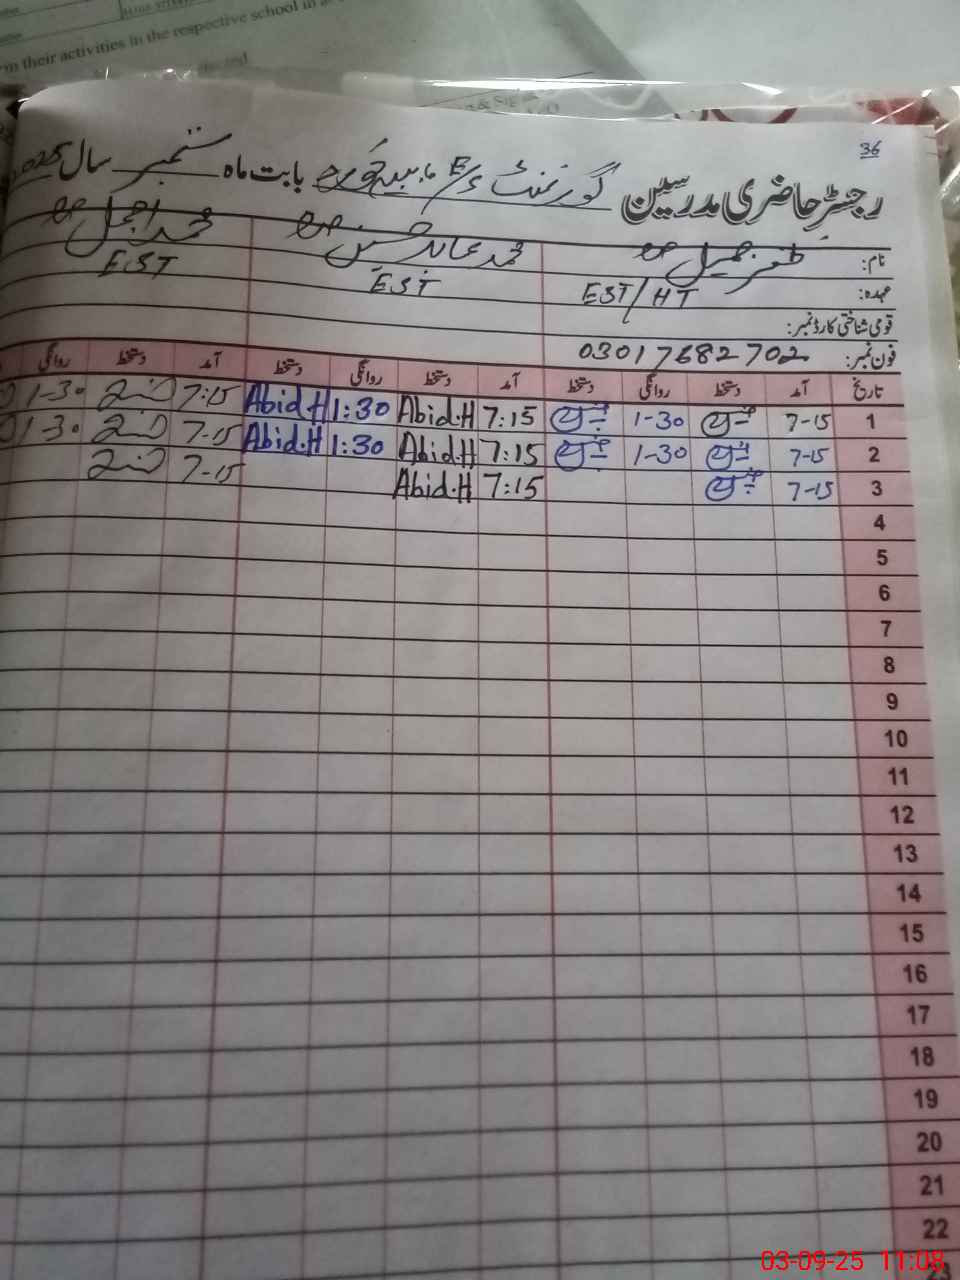 rm their activities in the respective school in a
36
رجسٹر حاضری مدرسین گورنمنٹ بابت ماہ ستمبر سال 2025
نام: ظفر جمیل صاحب محمد عابد حسین صاحب محمد اجمل صاحب
عہدہ: EST/HT EST EST
قومی شناختی کارڈ نمبر:
فون نمبر: 03017682702
تاریخ آمد دستخط روانگی دستخط آمد دستخط روانگی دستخط آمد دستخط روانگی
1 7-15 1-30 7:15 Abid.H 1:30 Abid.H 7:15 1-30
2 7-15 1-30 7:15 Abid.H 1:30 Abid.H 7-15 1-30
3 7-15 7:15 Abid.H 7-15
4
5
6
7
8
9
10
11
12
13
14
15
16
17
18
19
20
21
22
23
03-09-25 11:08